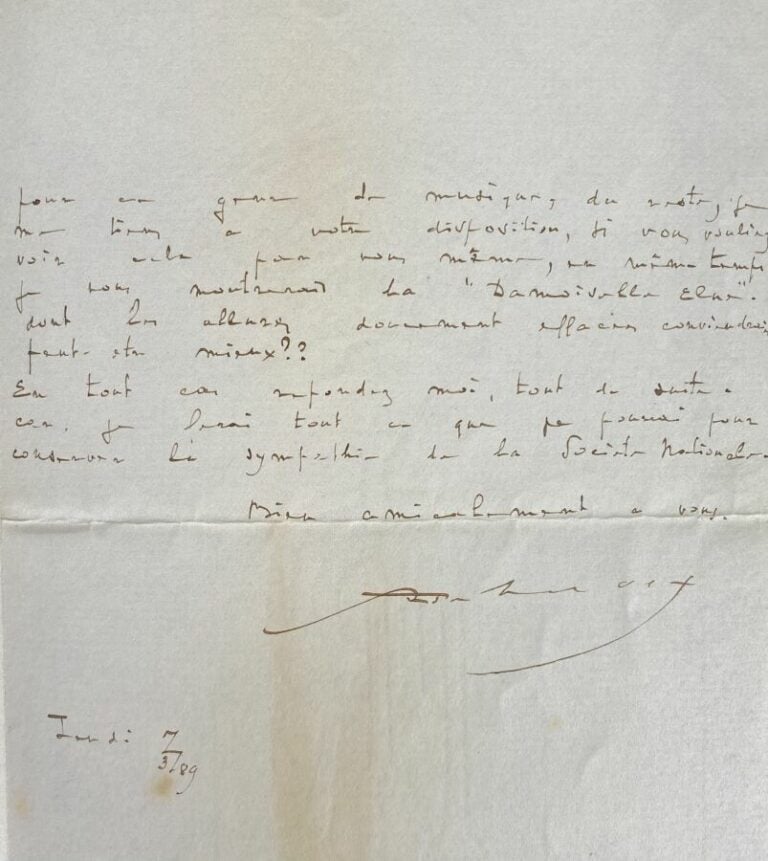 pour ce genre de musique, du reste, je
me tiens a votre disposition, si vous vouliez
voir cela par vous même, en même temps
je vous montrerais la "Damoiselle Elue".
dont les allures doucement effacées conviendrait
peut-etre mieux??
En tout cas repondez moi, tout de suite.
car, je ferai tout ce que je pourrai pour
conserver la sympathie de la Societe Nationale.
Bien amicalement a vous.
Jeudi 7/3/89